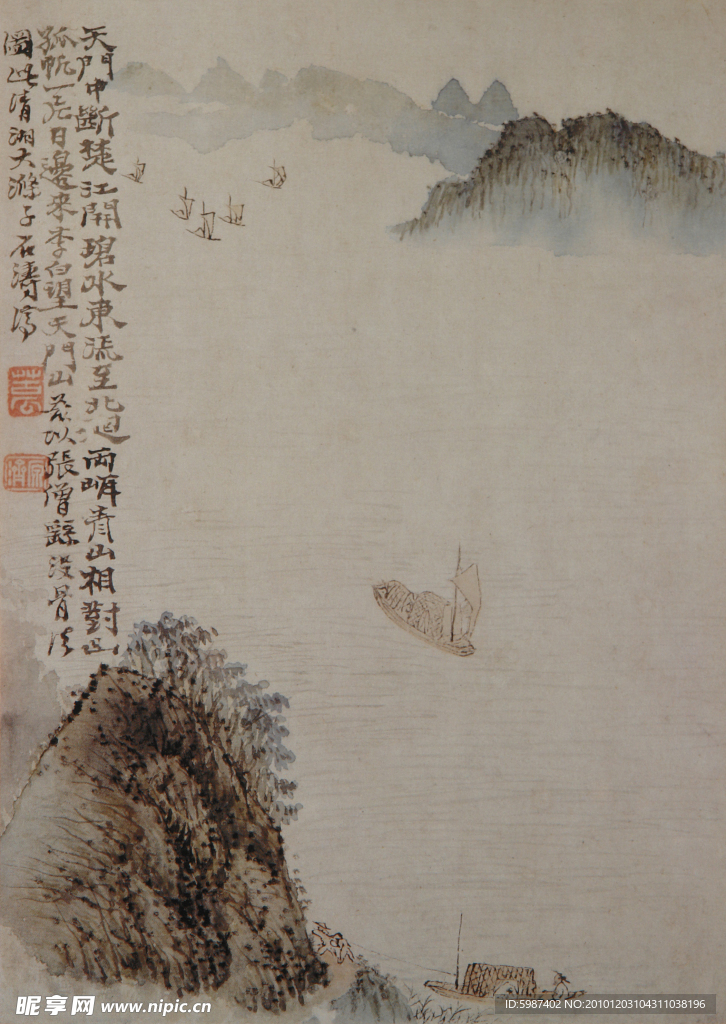 天門中斷楚江開碧水東流至北迴兩岍青山相對出
孤帆一片日邊來李白望天門山茲以張僧繇沒骨法
圖此清湘大滌子石濤濟
昵享网 www.nipic.cn
ID:5987402 NO:20101203104311038196